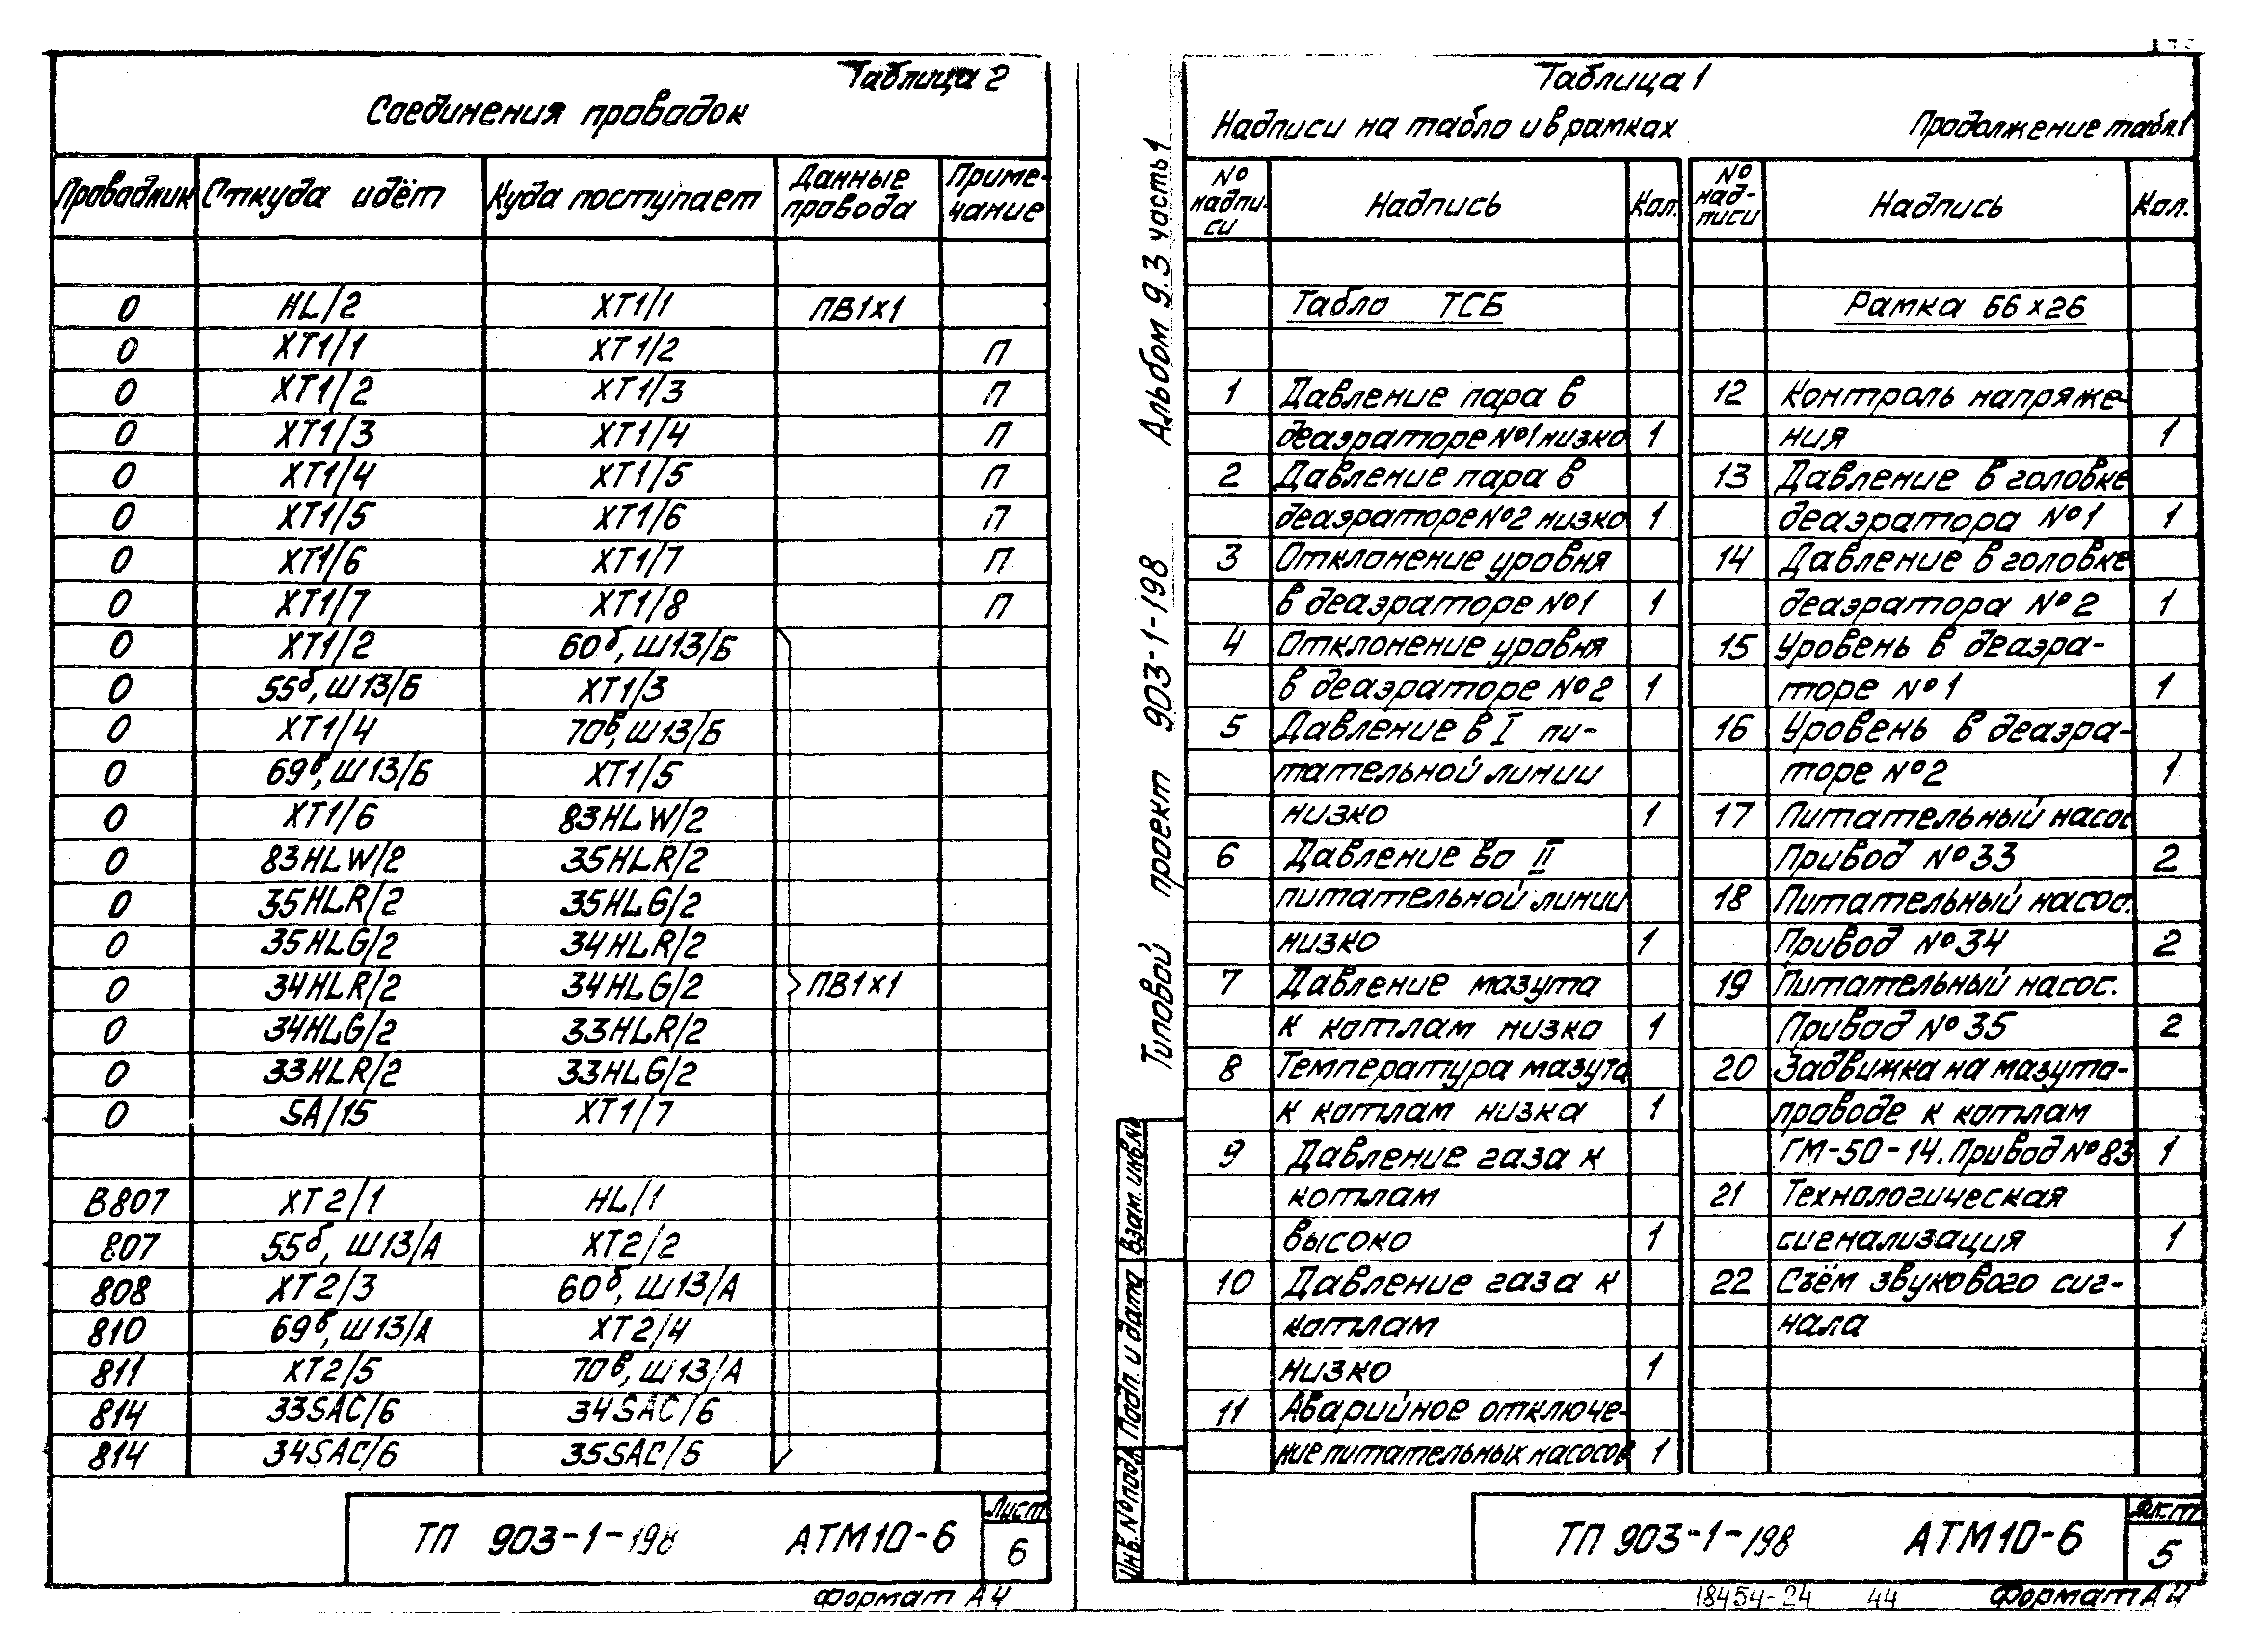 Таблица 2
Соединения проводок
Проводник Откуда идёт Куда поступает Данные провода Приме-чание
0 HL/2 XT1/1 ПВ1х1
0 XT1/1 XT1/2 П
0 XT1/2 XT1/3 П
0 XT1/3 XT1/4 П
0 XT1/4 XT1/5 П
0 XT1/5 XT1/6 П
0 XT1/6 XT1/7 П
0 XT1/7 XT1/8 П
0 XT1/2 60б, Ш13/Б
0 55б, Ш13/Б XT1/3
0 XT1/4 70в, Ш13/Б
0 69в, Ш13/Б XT1/5
0 XT1/6 83HLW/2
0 83HLW/2 35HLR/2
0 35HLR/2 35HLG/2
0 35HLG/2 34HLR/2
0 34HLR/2 34HLG/2 ПВ1х1
0 34HLG/2 33HLR/2
0 33HLR/2 33HLG/2
0 SA/15 XT1/7
В807 XT2/1 HL/1
807 55б, Ш13/А XT2/2
808 XT2/3 60б, Ш13/А
810 69в, Ш13/А XT2/4
811 XT2/5 70в, Ш13/А
814 33SAC/6 34SAC/6
814 34SAC/6 35SAC/6
ТП 903-1-198 АТМ10-6
Лист
6
Формат А4
Типовой проект 903-1-198 Альбом 9.3 часть 1
Взам. инв. №
Подп. и дата
Инв. № подл.
Таблица 1
Надписи на табло и в рамках
Продолжение табл. 1
№ надпи-си Надпись Кол.
Табло ТСБ
1 Давление пара в
деаэраторе №1 низко 1
2 Давление пара в
деаэраторе №2 низко 1
3 Отклонение уровня
в деаэраторе №1 1
4 Отклонение уровня
в деаэраторе №2 1
5 Давление в I пи-
тательной линии
низко 1
6 Давление во II
питательной линии
низко 1
7 Давление мазута
к котлам низко 1
8 Температура мазута
к котлам низка 1
9 Давление газа к
котлам
высоко 1
10 Давление газа к
котлам
низко 1
11 Аварийное отключе-
ние питательных насосов 1
№ над-писи Надпись Кол.
Рамка 66х26
12 Контроль напряже-
ния 1
13 Давление в головке
деаэратора №1 1
14 Давление в головке
деаэратора №2 1
15 Уровень в деаэра-
торе №1 1
16 Уровень в деаэра-
торе №2 1
17 Питательный насос
Привод №33 2
18 Питательный насос.
Привод №34 2
19 Питательный насос.
Привод №35 2
20 Задвижка на мазуто-
проводе к котлам
ГМ-50-14. Привод №83 1
21 Технологическая
сигнализация 1
22 Съём звукового сиг-
нала
ТП 903-1-198 АТМ10-6
Лист
5
18454-24 44 Формат А4